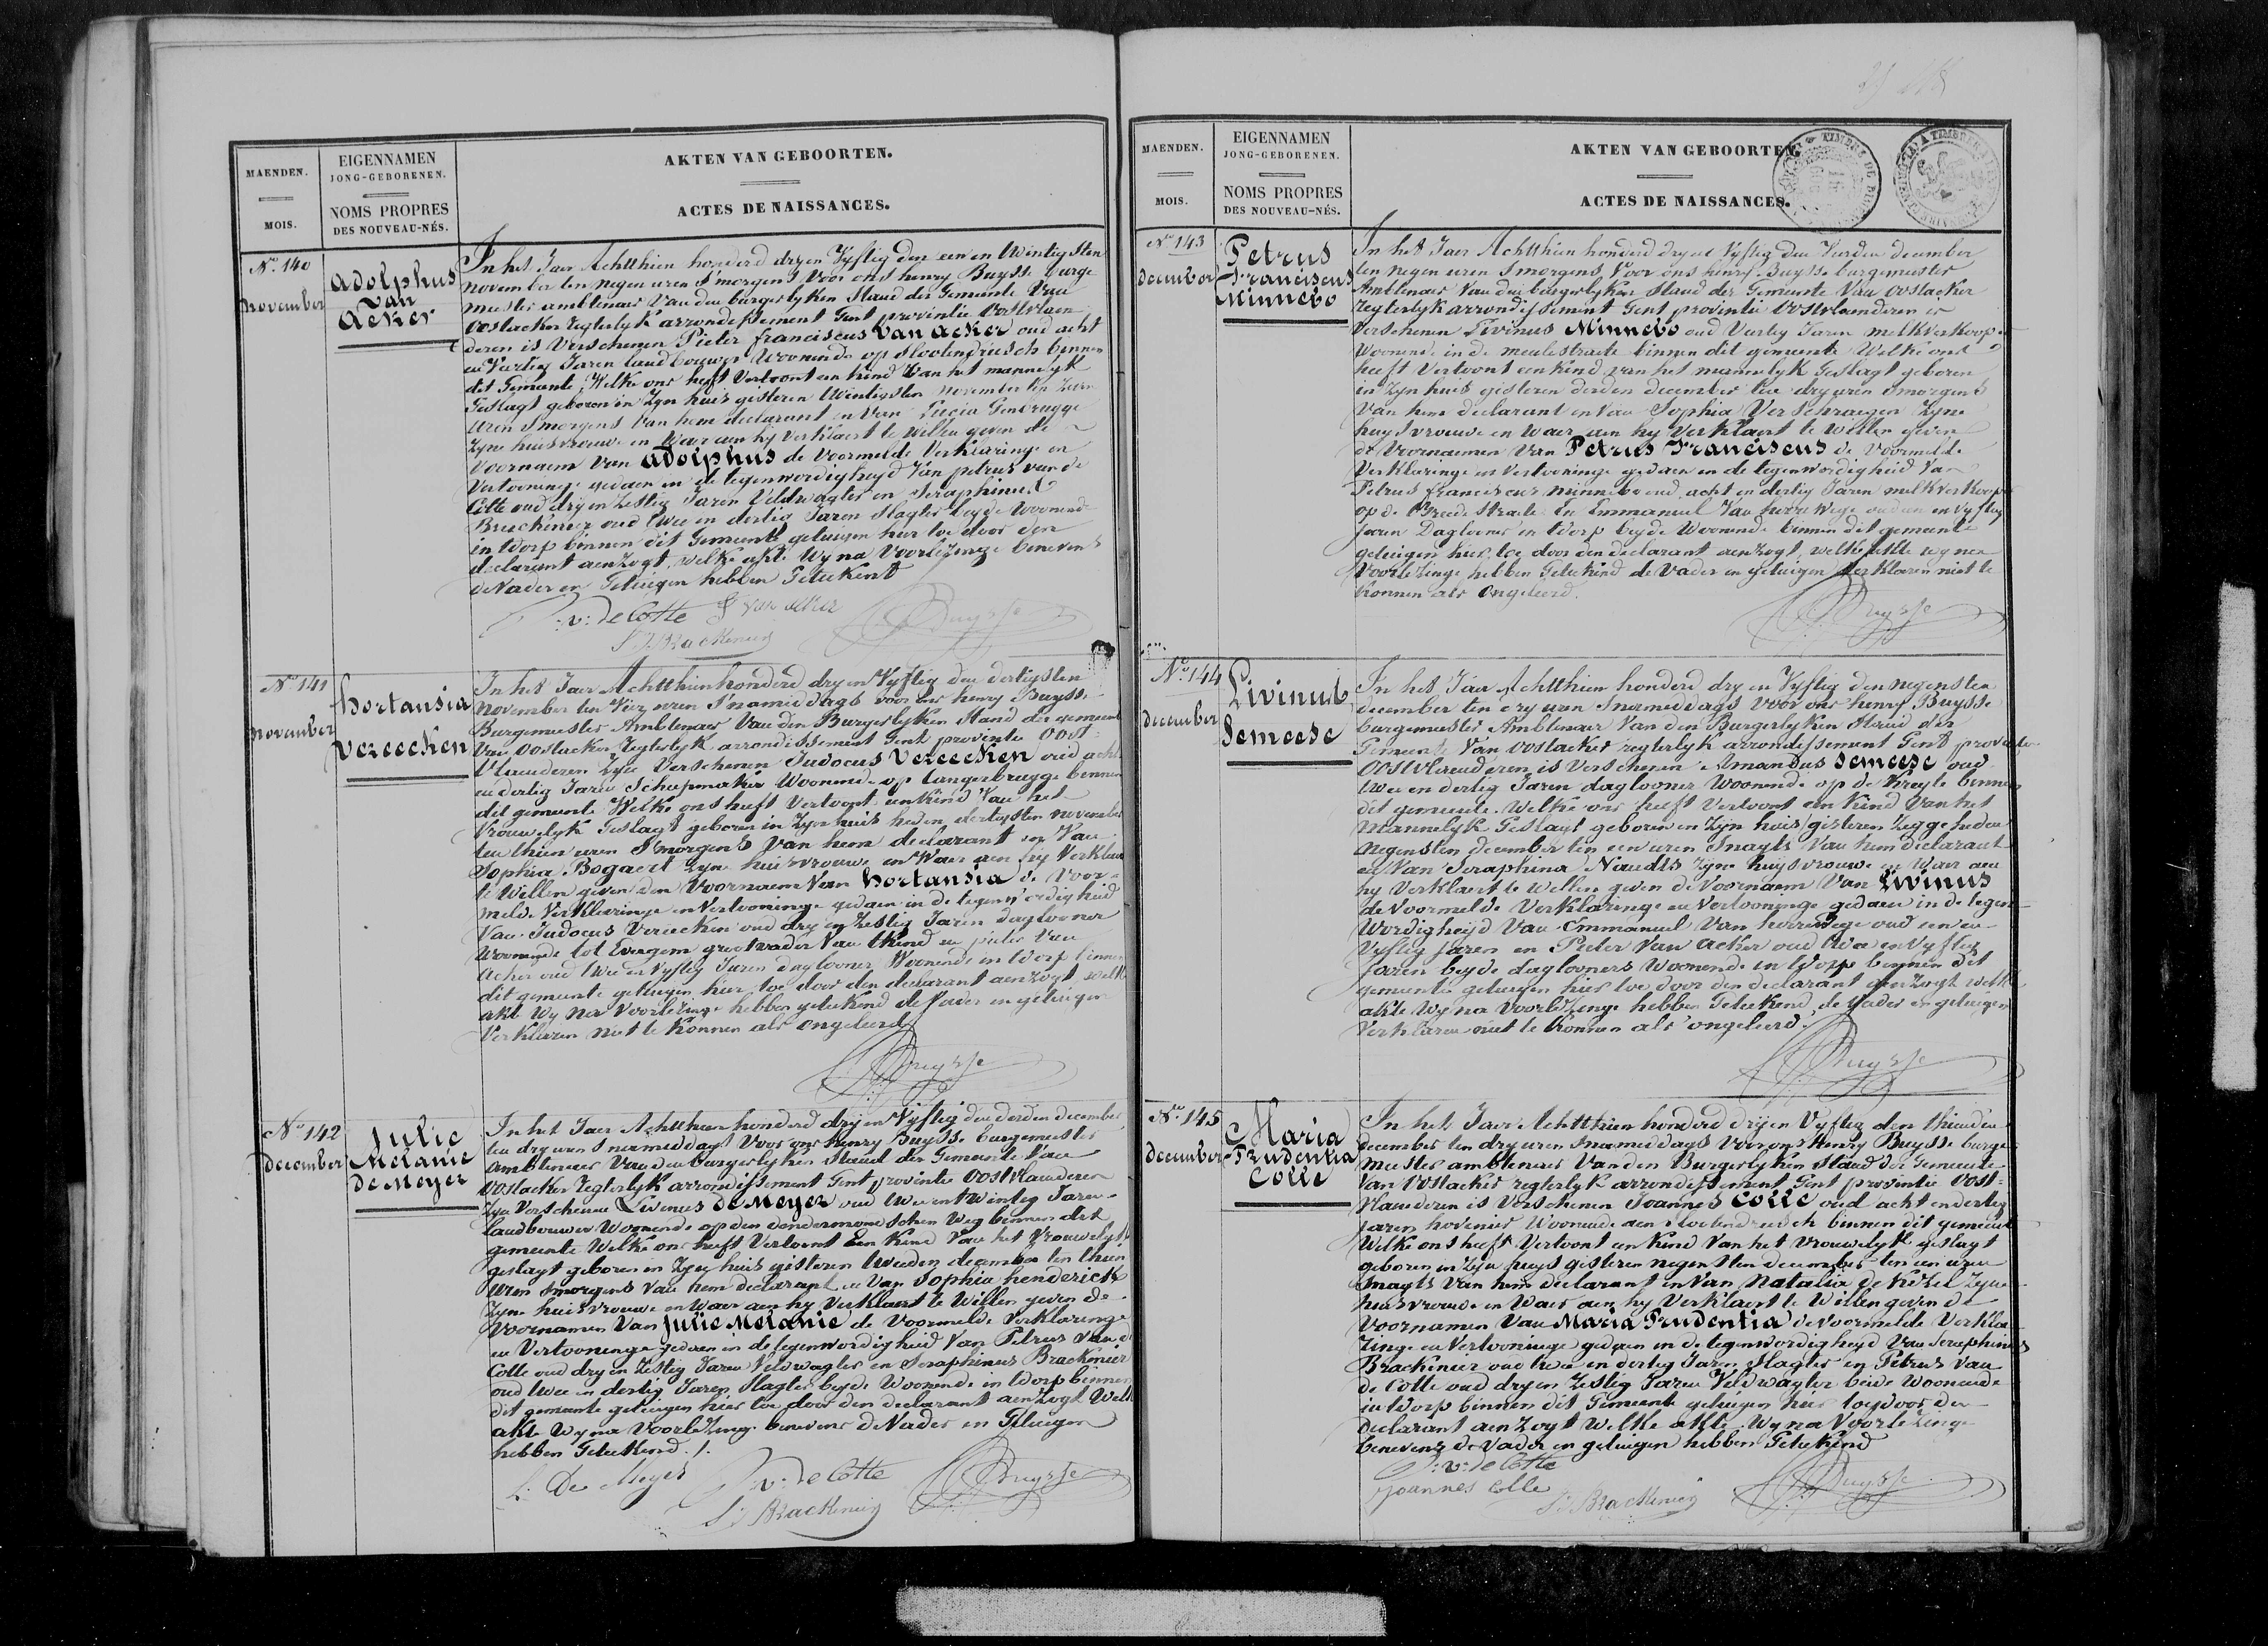 MAENDEN.
MOIS.
EIGENNAMEN
JONG-GEBORENEN.
NOMS PROPRES
DES NOUVEAU-NÉS.
AKTEN VAN GEBOORTEN.
ACTES DE NAISSANCES.
No. 140
november
adolphus
van
acker
In het Jaer Achtthien honderd dryen Vyftig den een en twintigsten
november ten negen uren s'morgens Voor ons henry Buysse burge
meester amblenaer Van den burgerlyken Stand der Gemeente Van
Oostacker Regterlyk arrondissement Gent provintie Oostvlaen
deren is Verschenen Pieter franciscus Van acker oud acht
en Veertig Jaren landbouwer Woonende op Slootendriesch binnen
dit Gemeente, Welke ons heeft Vertoont een kind Van het mannelyk
Geslagt geboren in Zyn huis gisteren twintigsten november ten Zeven
uren s'morgens Van hem declarant en Van Lucia Genbrugge
Zyne huisvrouwe en Waer aen hy Verklaert te Willen geven de
Voornaem Van adolphus de Voormelde Verklaringe en
Vertooninge gedaen in de tegenwoordigheyd Van petrus van de
Cotte oud dry en Zestig Jaren Veldwagter en Seraphinus
Brackenier oud twee en dertig Jaren Slagter beyde Woonende
in tdorp binnen dit Gemeente getuigen hier toe door den
declarant aenzogt, welke akte Wy na Voorlezinge benevens
de Vader en Getuigen hebben Geteekent
P. v: de Cotte P van acker
S: Brackenier Buysse
No 141
november
hortansia
Vereecken
In het Jaer Achtthien honderd dry en Vyftig den dertigsten
November ten Vier uren s'namiddags voor ons henry Buysse
Burgemeester Amblenaer Van den Burgerlyken Stand der gemeente
Van Oostacker Regterlyk arrondissement Gent provintie Oost-
Vlaenderen Zyn Verschenen Judocus Vereecken oud acht
en dertig Jaren Scheepmaker Woonende op langerbrugge binnen
dit gemeente Welke ons heeft Vertoont een kind Van het
Vrouwelyk Geslagt geboren in Zyn huis heden dertigsten november
ten thien uren s'morgens Van hem declarant en Van
Sophia Bogaert Zyne huisvrouwe en Waer aen hy Verklaert
te Willen geven den Voornaem Van hortansia de Voor-
melde Verklaringe en Vertooninge gedaen in de tegenwoordigheid
Van Judocus Vereecken oud dry en Zestig Jaren daglooner
Woonende tot Evergem grootvader Van tkind en pieter Van
Acker oud twee en Vyftig Jaren daglooner Woonende in tdorp binnen
dit gemeente getuigen hier toe door den declarant aenzogt welke
akte Wy na Voorlezinge hebben geteekend de Vader en getuigen
Verklaren niet te konnen als ongeleerd
Buysse
No 142
december
Julie
Melanie
de Meyer
In het Jaer Achtthien honderd dry en Vyftig den derden december
ten dry uren s'namiddags Voor ons henry Buysse burgemeester
amblenaer Van den burgerlyken Stand der Gemeente Van
Oostacker Regterlyk arrondissement Gent provintie Oostvlaenderen
Zyn Verschenen Livinus de Meyer oud twee en twintig Jaren
landbouwer Woonende op den dendermondschen Weg binnen dit
gemeente Welke ons heeft Vertoont Een kind Van het Vrouwelyk
geslagt geboren in Zyn huis gisteren tweeden december ten thien
uren s'morgens Van hem declarant en Van Sophia henderickx
Zyne huisvrouwe en Waer aen hy Verklaert te Willen geven de
Voornamen Van Julie Melanie de Voormelde Verklaringe
en Vertooninge gedaen in de tegenwoordigheid Van Petrus Van de
Cotte oud dry en Zestig Jaren Veldwagter en Seraphinus Brackenier
oud twee en dertig Jaren Slagter beyde Woonende in tdorp binnen
dit gemeente getuigen hier toe door den declarant aenzogt Welke
akte Wy na Voorlezinge benevens de Vader en Getuigen
hebben Geteekend ./.
L: De Meyer P. v: de Cotte Buysse
S: Brackenier
MAENDEN.
MOIS.
EIGENNAMEN
JONG-GEBORENEN.
NOMS PROPRES
DES NOUVEAU-NÉS.
AKTEN VAN GEBOORTEN.
ACTES DE NAISSANCES.
No 143
december
Petrus
Franciscus
Minnebo
In het Jaer Achtthien honderd dry en Vyftig den Vierden december
ten negen uren s'morgens, Voor ons henry Buysse burgemeester
Amblenaer Van den burgerlyken Stand der Gemeente Van Oostacker
Regterlyk arrondissement Gent provintie Oostvlaenderen is
Verschenen Livinus Minnebo oud Veertig Jaren melkverkooper
Woonende in de meulestraete binnen dit gemeente Welke ons
heeft Vertoont een kind van het mannelyk Geslagt geboren
in Zyn huis gisteren derden december ten dry uren s'morgens
Van hem declarant en Van Sophia Verschraegen Zyne
huysvrouwe en Waer aen hy Verklaert te Willen geven
de Voornaemen Van Petrus Franciscus de Voormelde
Verklaringe en Vertooninge gedaen in de tegenwordigheid Van
Petrus franciscus minnebo oud acht en dertig Jaren melkverkooper
op de Breedestraete En Emmanuel Van heerwege oud een en Vyftig
Jaren Daglooner in tdorp beyde Woonende binnen dit gemeente
getuigen hier toe door den declarant aenzogt, welke akte wy na
Voorlezinge hebben Geteekend de Vader en getuigen Verklaren niet te
konnen als Ongeleerd.
Buysse
No 144
december
Livinus
Semeese
In het Jaer Achtthien honderd dry en Vyftig den negensten
december ten dry uren s'namiddags Voor ons henry Buysse
burgemeester Amblenaer Van den Burgerlyken Stand der
Gemeente Van Oostacker regterlyk arrondissement Gent provintie
Oostvlaenderen is Verschenen Amandus Semeese oud
twee en dertig Jaren daglooner Woonende op de Kreyte binnen
dit gemeente. Welke ons heeft Vertoont een kind Van het
mannelyk Geslagt geboren in Zyn huis gisteren Zegge heden
negensten december ten een uren s'nagts Van hem declarant
en Van Seraphina Naudts Zyne huysvrouwe en Waer aen
hy Verklaert te Willen geven de Voornaem Van Livinus
de Voormelde Verklaringe en Vertooninge gedaen in de tegen-
wordigheyd Van Emmanuel Van heerwege oud een en
Vyftig Jaren en Pieter Van Acker oud twee en Vyftig
Jaren beyde daglooners Woonende in tdorp binnen dit
gemeente getuigen hier toe door den declarant aenzogt welke
akte Wy na Voorlezinge hebben Geteekend, de Vader en getuigen
Verklaren niet te konnen als ongeleerd.
Buysse
No 145
december
Maria
Prudentia
Colle
In het Jaer Achtthien honderd dry en Vyftig den thienden
december ten dry uren s'namiddags Voor ons Henry Buysse burge
meester amblenaer Van den Burgerlyken Stand der Gemeente
Van Oostacker regterlyk arrondissement Gent provintie Oost-
Vlaenderen is Verschenen Joannes Colle oud acht en dertig
Jaren hovenier Woonende aen Slootendriesch binnen dit gemeente
Welke ons heeft Vertoont een kind Van het Vrouwelyk geslagt
geboren in Zyn huys gisteren negensten december ten een uren
s'nagts Van hem declarant en Van Natalia de Kezel Zyne
huisvrouwe en Waer aen hy Verklaert te Willen geven de
Voornamen Van Maria Prudentia de Voormelde Verkla-
ringe en Vertooninge gedaen in de tegenwordigheyd Van Seraphinus
Brackenier oud twee en dertig Jaren Slagter en Petrus Van
de Cotte oud dry en Zestig Jaren Veldwagter beide Woonende
in tdorp binnen dit Gemeente getuigen hier toe door den
declarant aenzogt Welke akte Wy na Voorlezinge
benevens de Vader en getuigen hebben Geteekend
P. v: de Cotte
Joannes Colle S: Brackenier Buysse